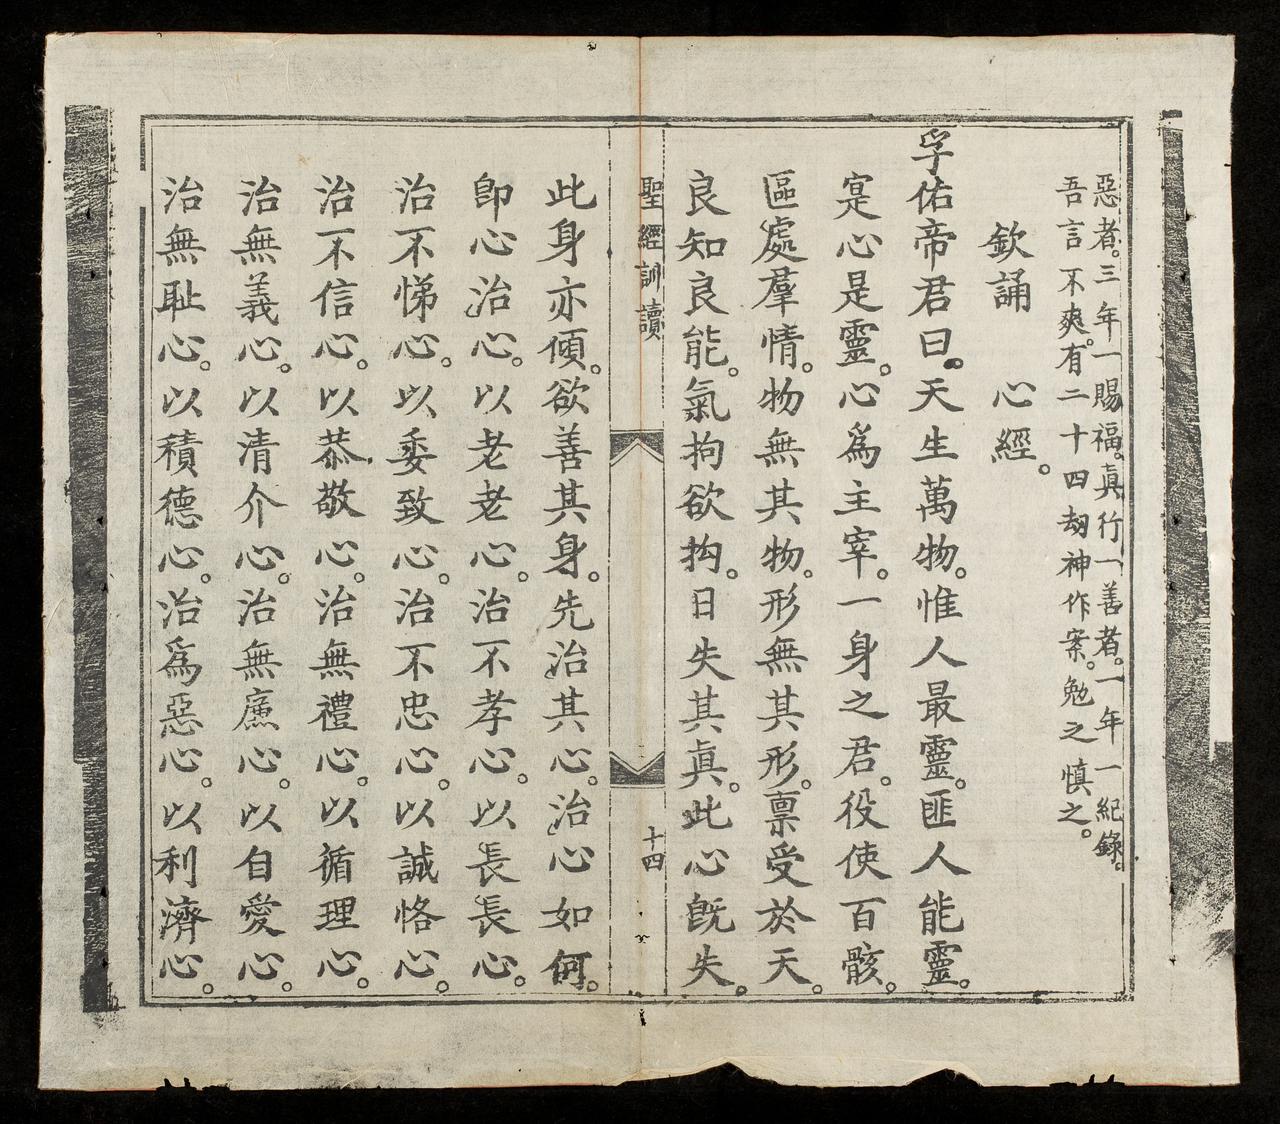 惡者。三年一賜福。眞行一善者。一年一紀錄。
吾言不爽。有二十四刼神作案。勉之慎之。
欽誦 心經。
孚佑帝君曰。天生萬物。惟人最靈。匪人能靈。
寔心是靈。心爲主宰。一身之君。役使百骸。
區處羣情。物無其物。形無其形。稟受於天。
良知良能。氣拘欲拘。日失其眞。此心旣失。
聖經訓讀 十四
此身亦傾。欲善其身。先治其心。治心如何。
卽心治心。以老老心。治不孝心。以長長心。
治不悌心。以委致心。治不忠心。以誠恪心。
治不信心。以恭敬心。治無禮心。以循理心。
治無義心。以清介心。治無㢘心。以自愛心。
治無恥心。以積德心。治爲惡心。以利濟心。